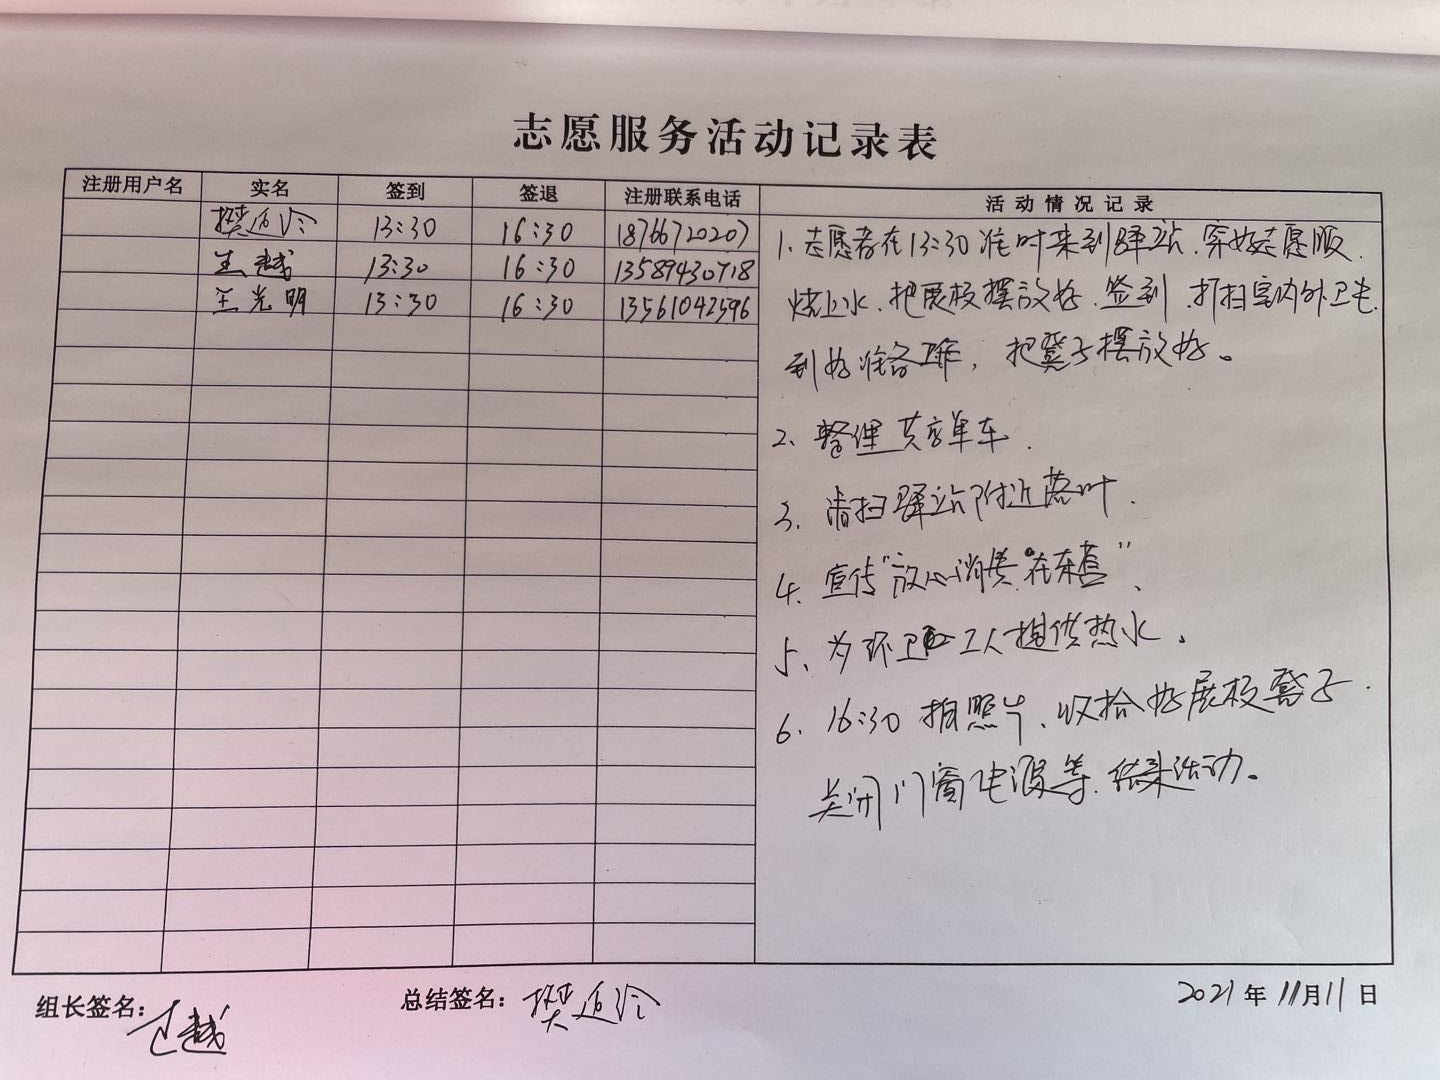 志愿服务活动记录表
注册用户名 实名 签到 签退 注册联系电话 活动情况记录
樊 13:30 16:30 18766720207
王越 13:30 16:30 13589430718
王光明 13:30 16:30 13561042596
1. 志愿者在13:30准时来到驿站.穿好志愿服.
烧上水.把展板摆放好.签到.打扫室内外卫生.
到好准备工作，把凳子摆放好。
2、整理共享单车.
3、清扫驿站附近落叶.
4、宣传"放心消费 在东营"、
5、为环卫工人提供热水.
6. 16:30 拍照片、收拾好展板凳子.
关闭门窗电源等.结束活动。
组长签名：王越 总结签名：樊 2021年11月11日